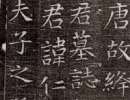 唐故絳
君墓誌
君諱仁
夫子之